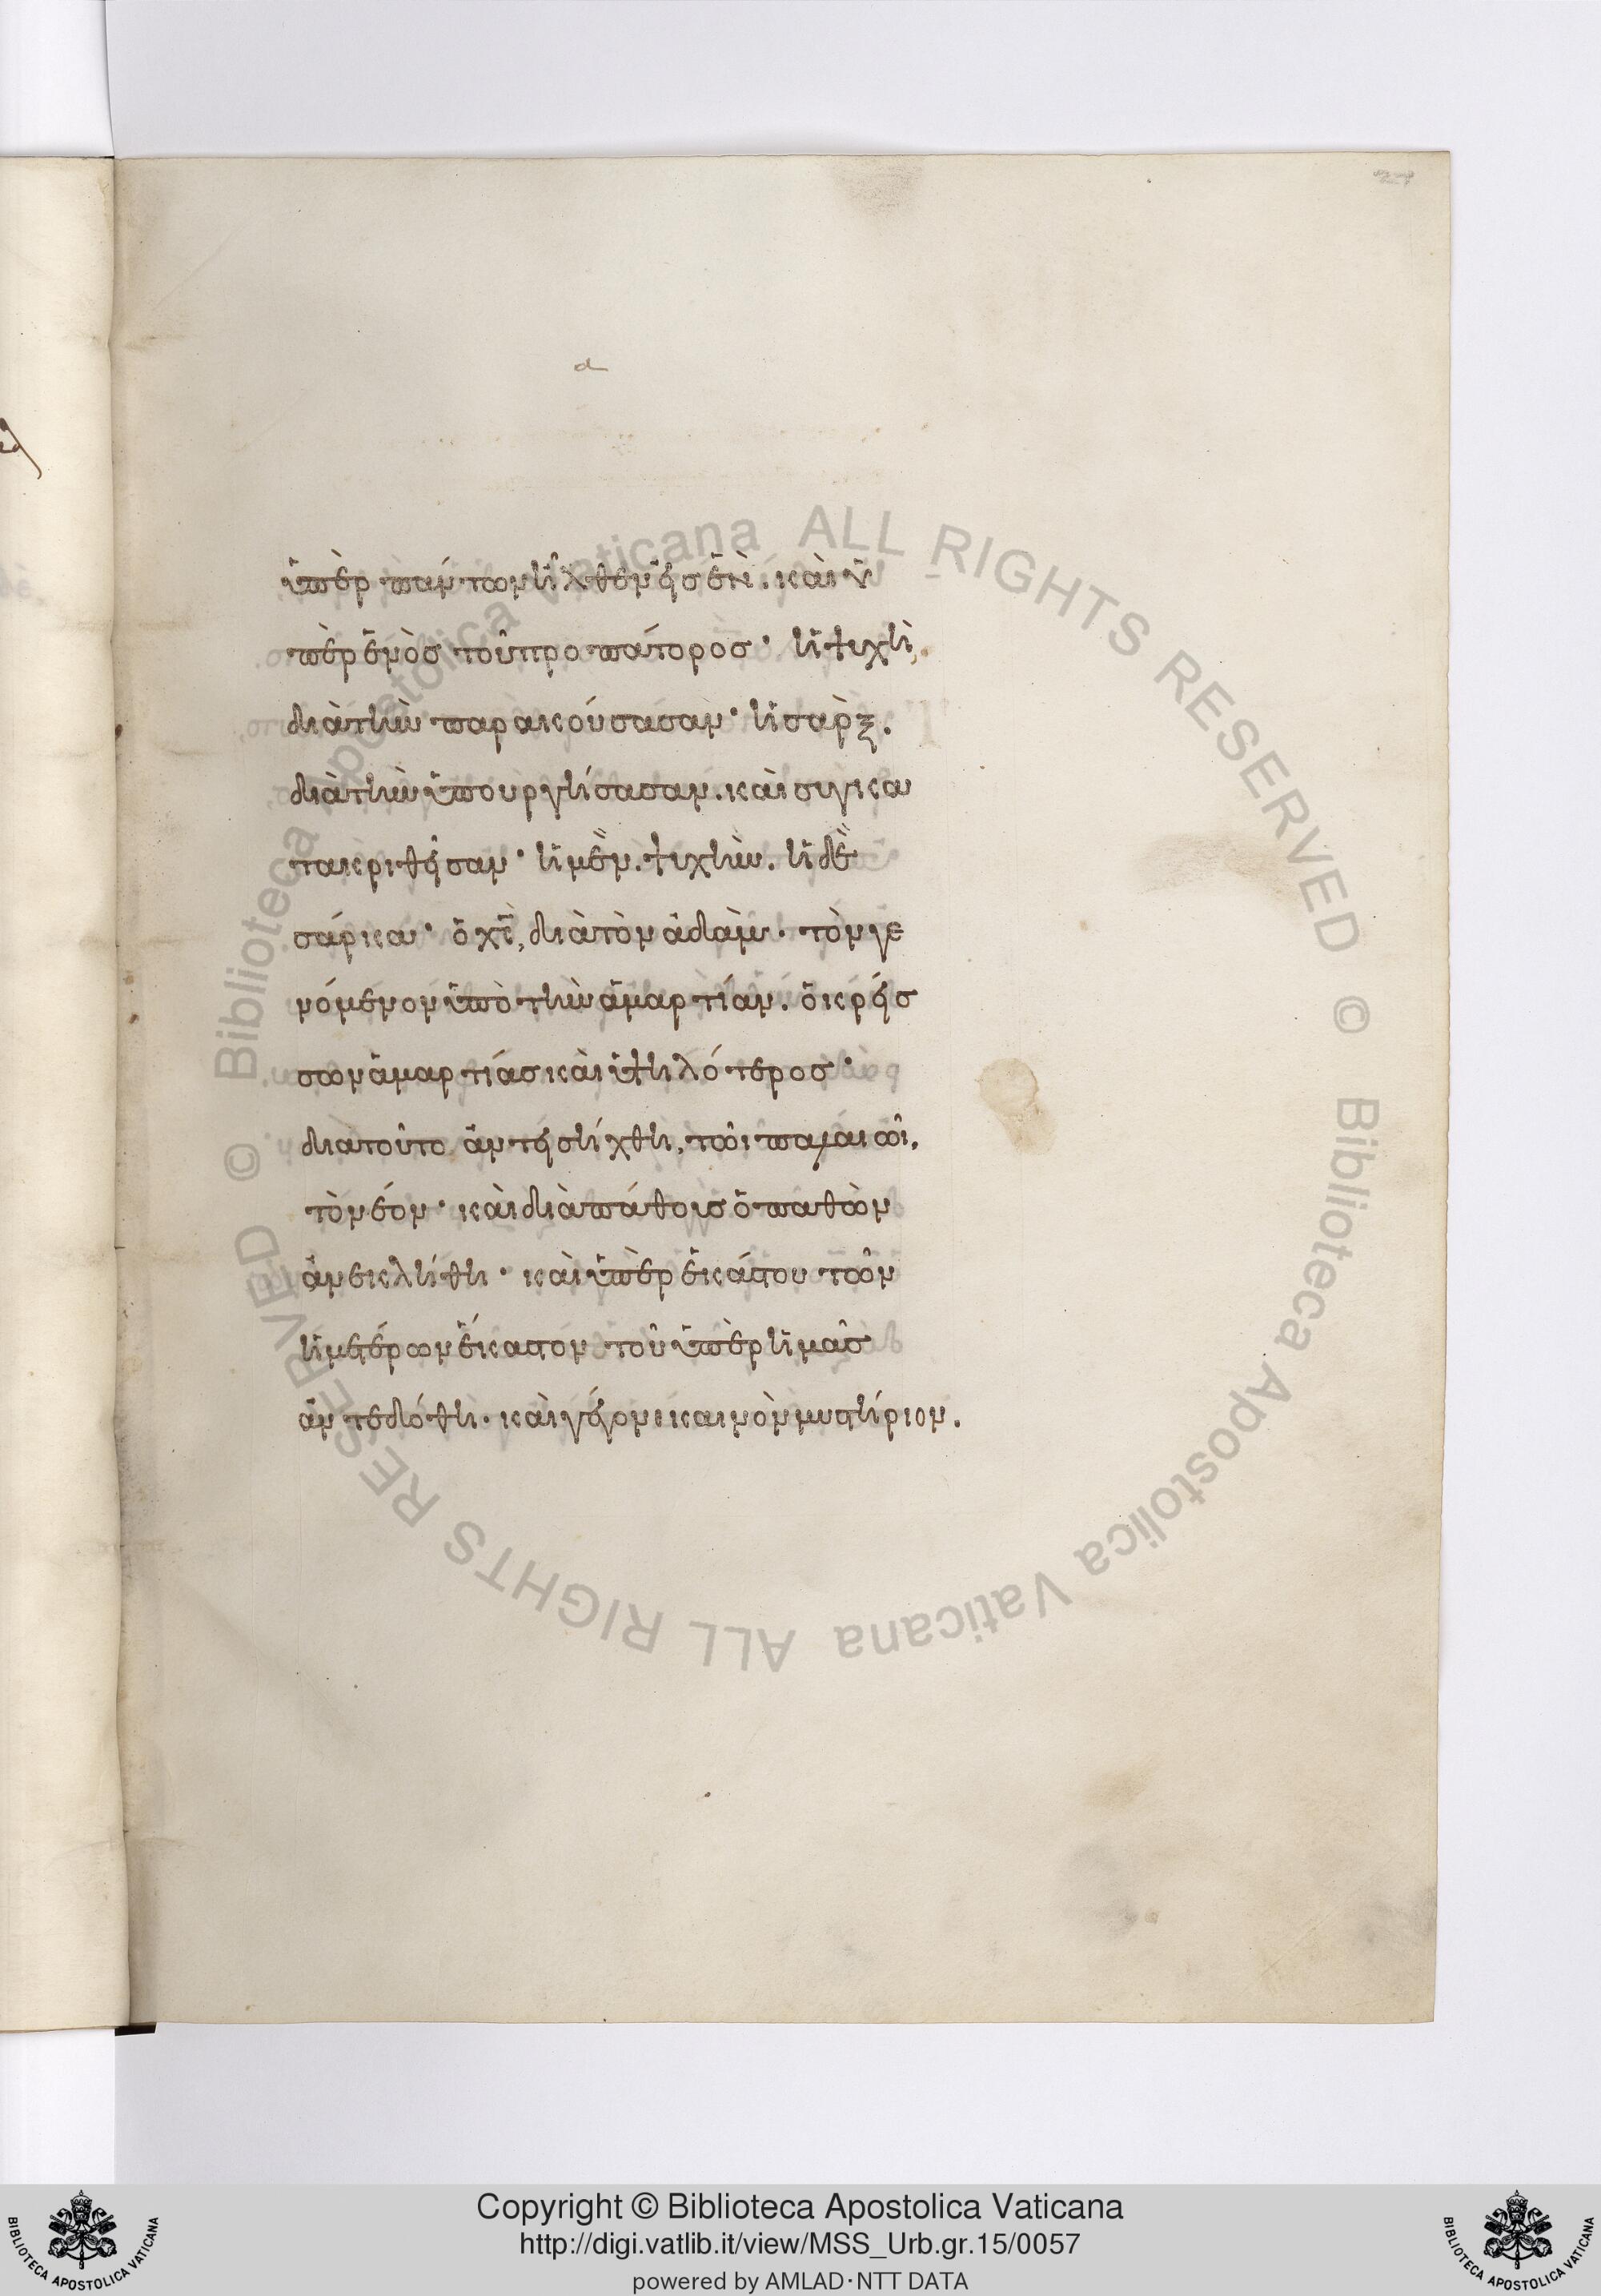 ὑπὲρ πάντων ἤχθημεν εἰς ἕν. καὶ ὑ
πὲρ ἑνὸς τοῦ προπάτορος· ἡ ψυχὴ,
διὰ τὴν παρακούσασαν· ἡ σὰρξ.
διὰ τὴν ὑπουργήσασαν. καὶ συγκα
τακριθεῖσαν· ἡ μὲν. ψυχὴν. ἡ δὲ
σάρκα· ὁ χς̅, διὰ τὸν ἀδὰμ· τὸν γε
νόμενον ὑπὸ τὴν ἁμαρτίαν. ὁ κρείσ
σων ἁμαρτίας καὶ ὑψηλότερος·
διατοῦτο ἀντεισήχθη, τῶι παλαιῶι,
τὸ νέον· καὶ διὰ πάθους ὁ παθὼν
ἀνεκλήθη· καὶ ὑπὲρ ἑκάστου τῶν
ἡμετέρων ἕκαστον τοῦ ὑπὲρ ἡμᾶς
ἀντεδόθη· καὶ γέγονε καινὸν μυστήριον.
Copyright © Biblioteca Apostolica Vaticana
http://digi.vatlib.it/view/MSS_Urb.gr.15/0057
powered by AMLAD·NTT DATA
BIBLIOTECA APOSTOLICA VATICANA
BIBLIOTECA APOSTOLICA VATICANA
© Biblioteca Apostolica Vaticana ALL RIGHTS RESERVED © Biblioteca Apostolica Vaticana ALL RIGHTS RESERVED